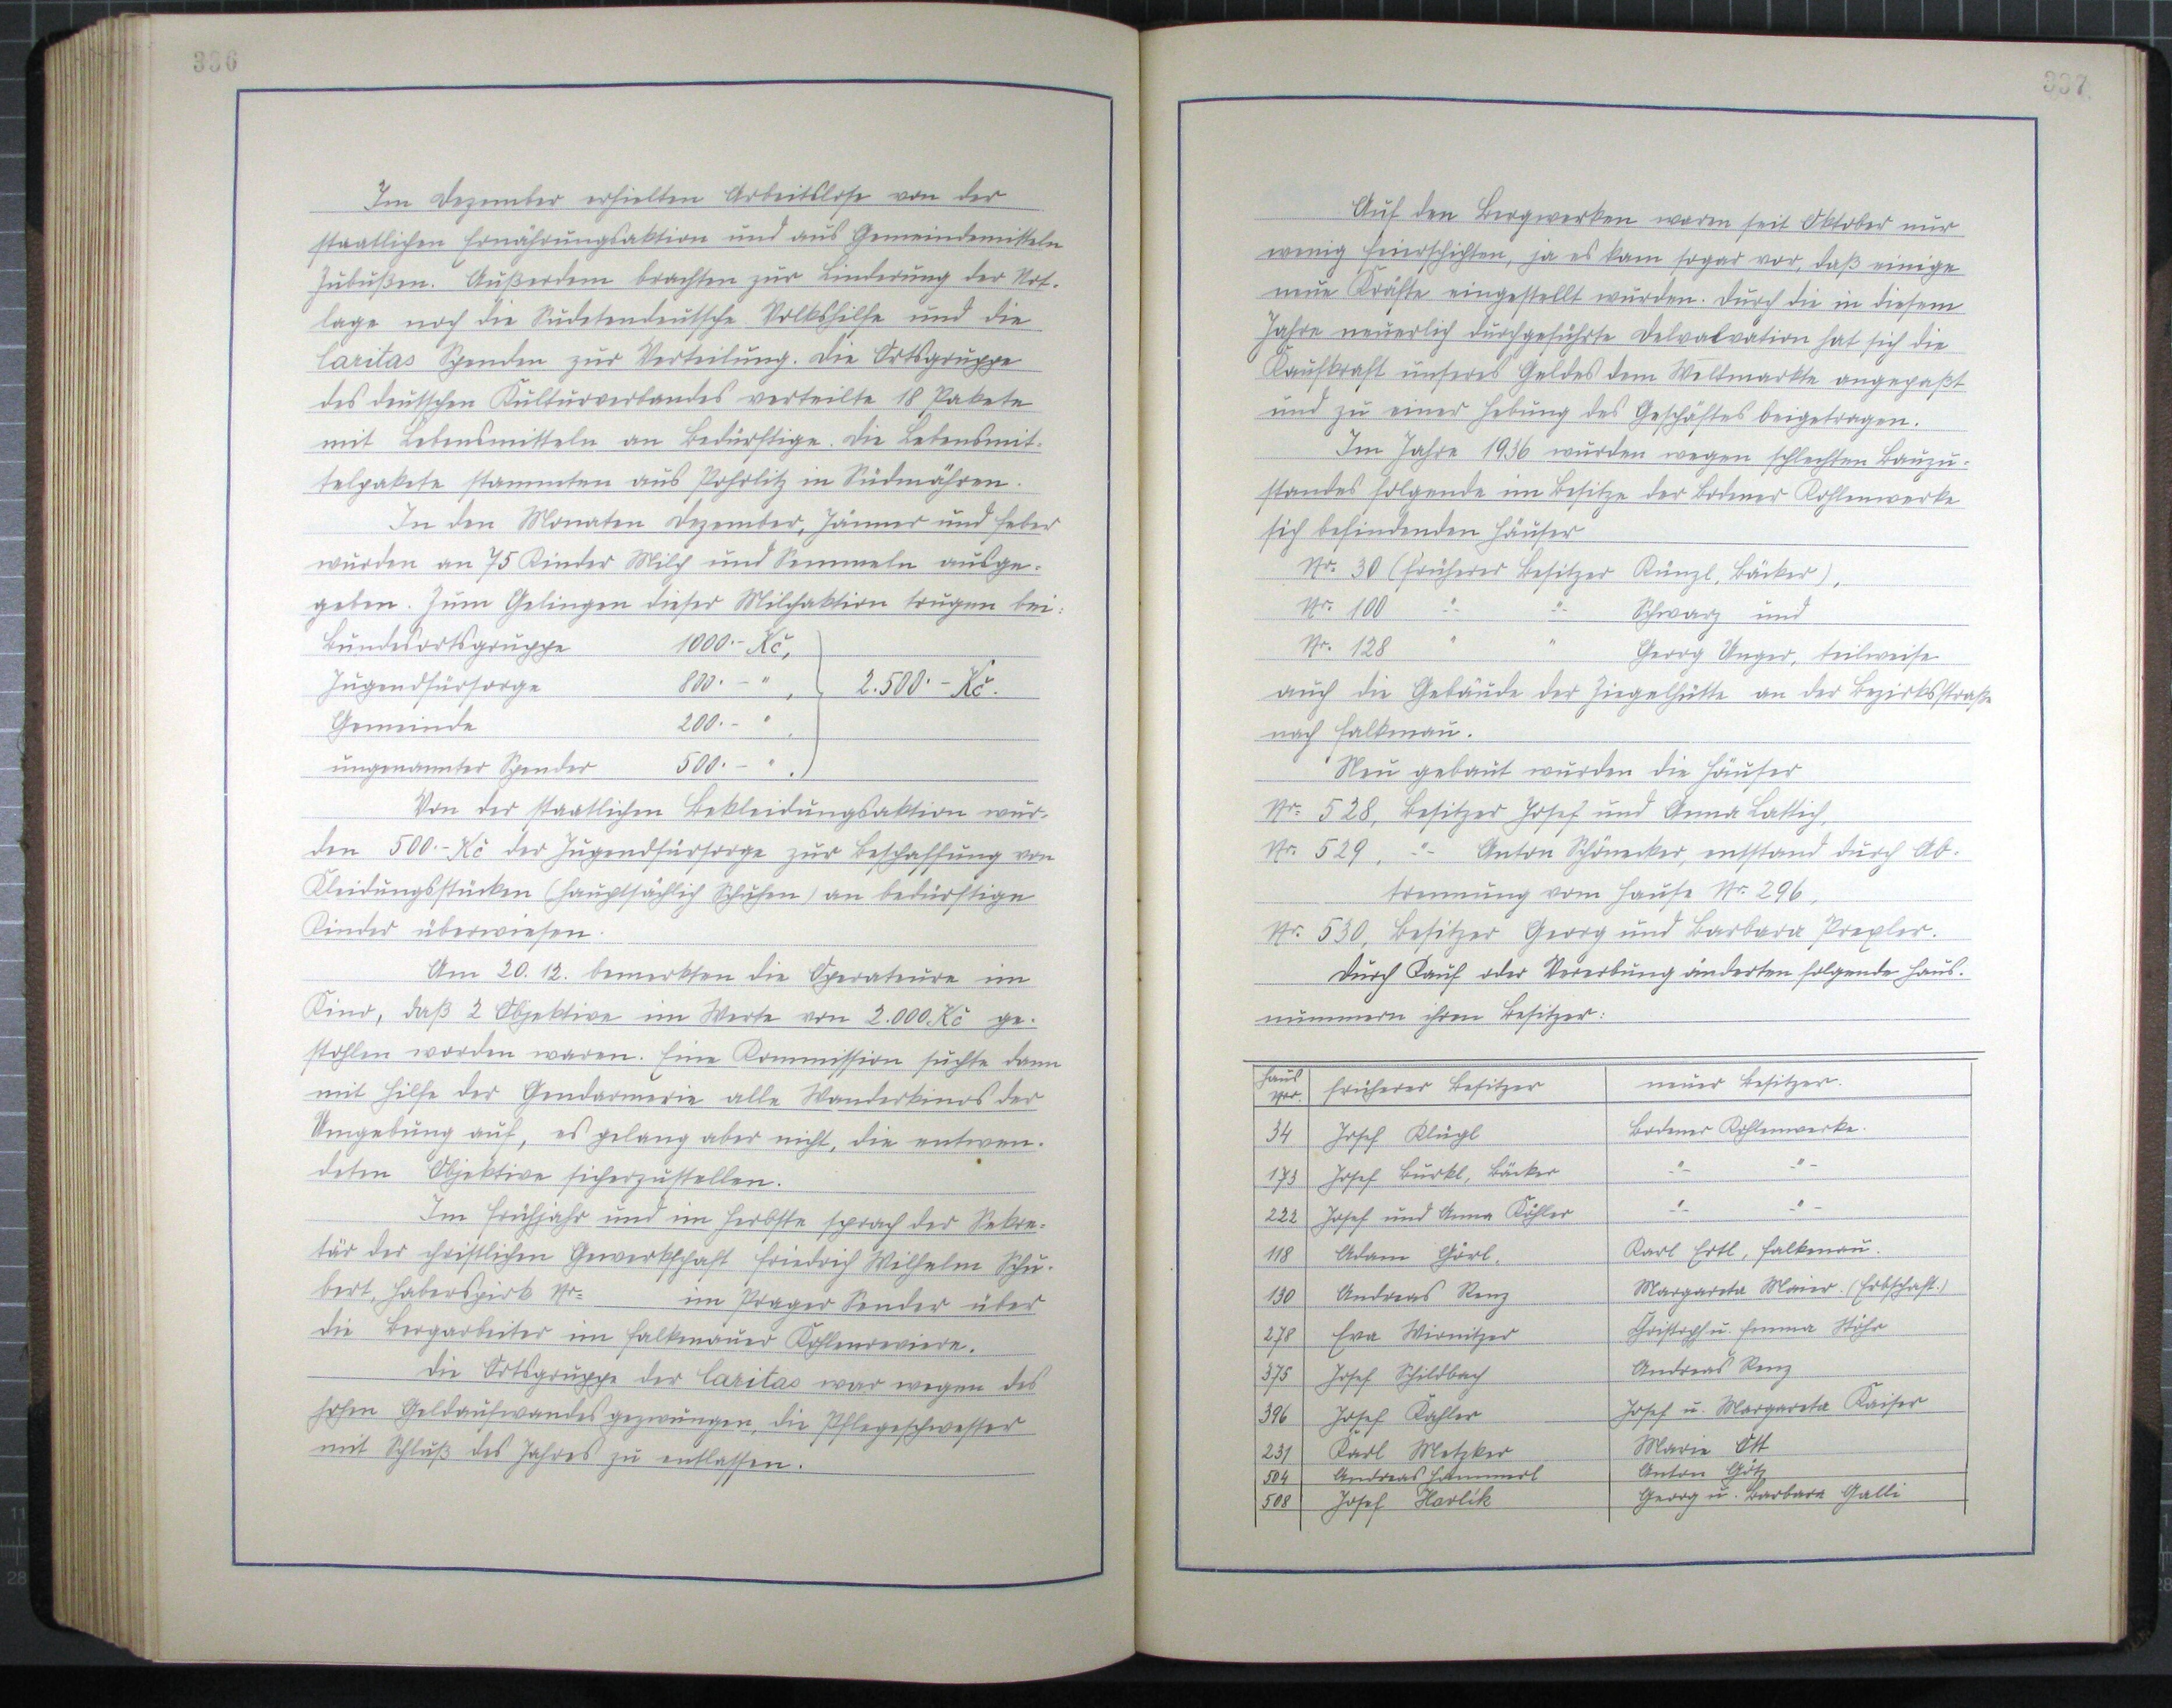 336
Im Dezember erhielten Arbeitslose von der
staatlichen Ernährungsaktion und aus Gemeindemitteln
Zubußen. Außerdem brachten zur Linderung der Not-
lage noch die Sudetendeutsche Volkshilfe und die
Caritas Spenden zur Verteilung. Die Ortsgruppe
des deutschen Kulturverbandes verteilte 18 Pakete
mit Lebensmitteln an Bedürftige. Die Lebensmit-
telpakete stammten aus Pohrlitz in Südmähren.
In den Monaten Dezember, Jänner und Feber
wurden an 75 Kinder Milch und Semmeln ausge-
geben. Zum Gelingen dieser Milchaktion trugen bei:
Bundesortsgruppe 1000.- Kč,
Jugendfürsorge 800.- " , 2.500.- Kč.
Gemeinde 200.- " ,
ungenannter Spender 500.- " .
Von der staatlichen Bekleidungsaktion wur-
den 500.- Kč der Jugendfürsorge zur Beschaffung von
Kleidungsstücken (hauptsächlich Schuhen) an bedürftige
Kinder überwiesen.
Am 20.12. bemerkten die Operateure im
Kino, daß 2 Objektive im Werte von 2.000 Kč ge-
stohlen worden waren. Eine Kommission suchte dann
mit Hilfe der Gendarmerie alle Wanderkinos der
Umgebung auf, es gelang aber nicht, die entwen-
deten Objektive sicherzustellen.
Im Frühjahr und im Herbste sprach der Sekre-
tär der christlichen Gewerkschaft Friedrich Wilhelm Schu-
bert, Haberspirk Nr. im Prager Sender über
die Bergarbeiter im Falkenauer Kohlenreviere.
Die Ortsgruppe der Caritas war wegen des
hohen Geldaufwandes gezwungen, die Pflegeschwester
mit Schluß des Jahres zu entlassen.
337
Auf den Bergwerken waren seit Oktober nur
wenig Feierschichten, ja es kam sogar vor, daß einige
neue Kräfte eingestellt wurden. Durch die in diesem
Jahre neuerlich durchgeführte Delvalvation hat sich die
Kaufkraft unseres Geldes dem Weltmarkte angepaßt
und zu einer Hebung des Geschäftes beigetragen.
Im Jahre 1936 wurden wegen schlechten Bauzu-
standes folgende im Besitze der Bodener Kohlenwerke
sich befindenden Häuser
Nr. 30 (früherer Besitzer Künzl, Bäcker),
Nr. 100 -"- -"- Schwarz und
Nr. 128 " " Georg Unger, teilweise
auch die Gebäude der Ziegelhütte an der Bezirksstraße
nach Falkenau.
Neu gebaut wurden die Häuser
Nr. 528, Besitzer Josef und Anna Lattich,
Nr. 529, -"- Anton Schönecker, entstand durch Ab-
trennung vom Hause Nr. 296,
Nr. 530, Besitzer Georg und Barbara Prexler.
Durch Kauf oder Vererbung änderten folgende Haus-
nummern ihren Besitzer:
Haus Nr. früherer Besitzer neuer Besitzer.
34 Josef Klügl Bodener Kohlenwerke.
173 Josef Burkl, Bäcker -"- -"-
222 Josef und Anna Köhler -"- -"-
118 Adam Görl. Karl Ertl, Falkenau.
130 Andreas Renz Margareta Maier. (Erbschaft.)
278 Eva Wirnitzer Christoph u. Emma Stöhr
375 Josef Schildbach Andreas Renz
396 Josef Kahler Josef u. Margareta Kaiser
231 Karl Metzker Marie Ott
504 Andreas Hammerl Anton Götz
508 Josef Havlík Georg u. Barbara Galli